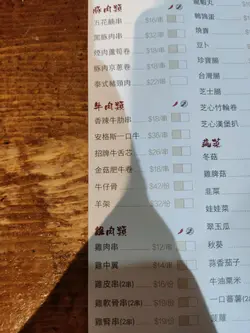 豚肉類
五花腩串 $18/串
黑豚肉串 $32/串
燒肉蘆筍卷
豚肉京蔥卷 $18/串
泰式豬頸肉 $22/串
牛肉類
香辣牛肋串 $18/串
安格斯一口牛 $35/串
招牌牛舌芯 $26/串
金菇肥牛卷 $18/串
牛仔骨
羊架
雞肉類
雞肉串 $12/串
雞中翼
雞皮串(2串)
雞軟骨串(2串)
雞腎串(2串) $19/份
鵪鶉蛋
豆卜
珍寶腸
台灣腸
芝士腸
芝心竹輪卷
芝心漢堡扒
蔬菜
冬菇
雞脾菇
韭菜
娃娃菜
翠玉瓜
秋葵
蒜香茄子
牛油粟米
一口蕃薯